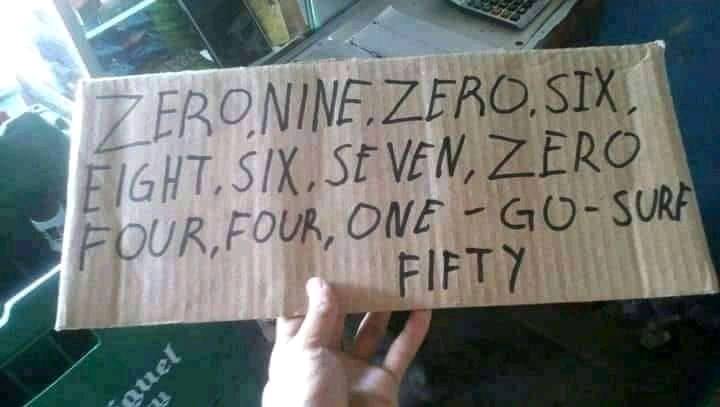 ZERO,NINE,ZERO,SIX,
EIGHT,SIX,SEVEN,ZERO
FOUR,FOUR,ONE-GO-SURF
FIFTY